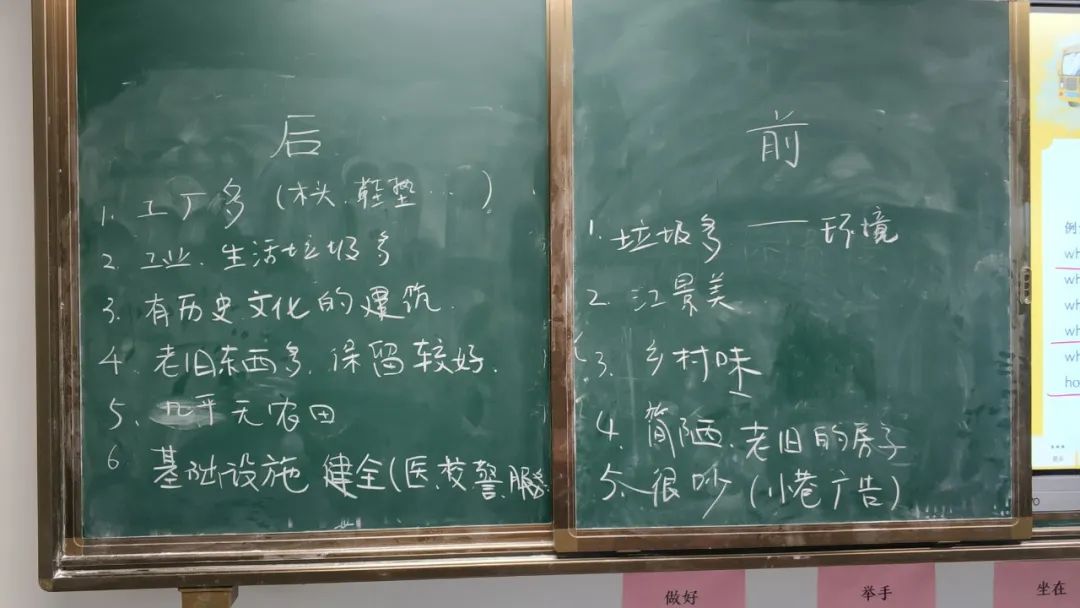 后
1. 工厂多（木头、鞋垫…）
2. 工业、生活垃圾多
3. 有历史文化的建筑.
4. 老旧东西多、保留较好.
5、几乎无农田
6 基础设施 健全(医、校、警、服务
前
1. 垃圾多 —— 环境
2. 江景美
3. 乡村味
4. 简陋、老旧的房子
5、很吵（小巷广告）
例
wh
wh
wh
wh
wh
ho
做好
举手
坐在